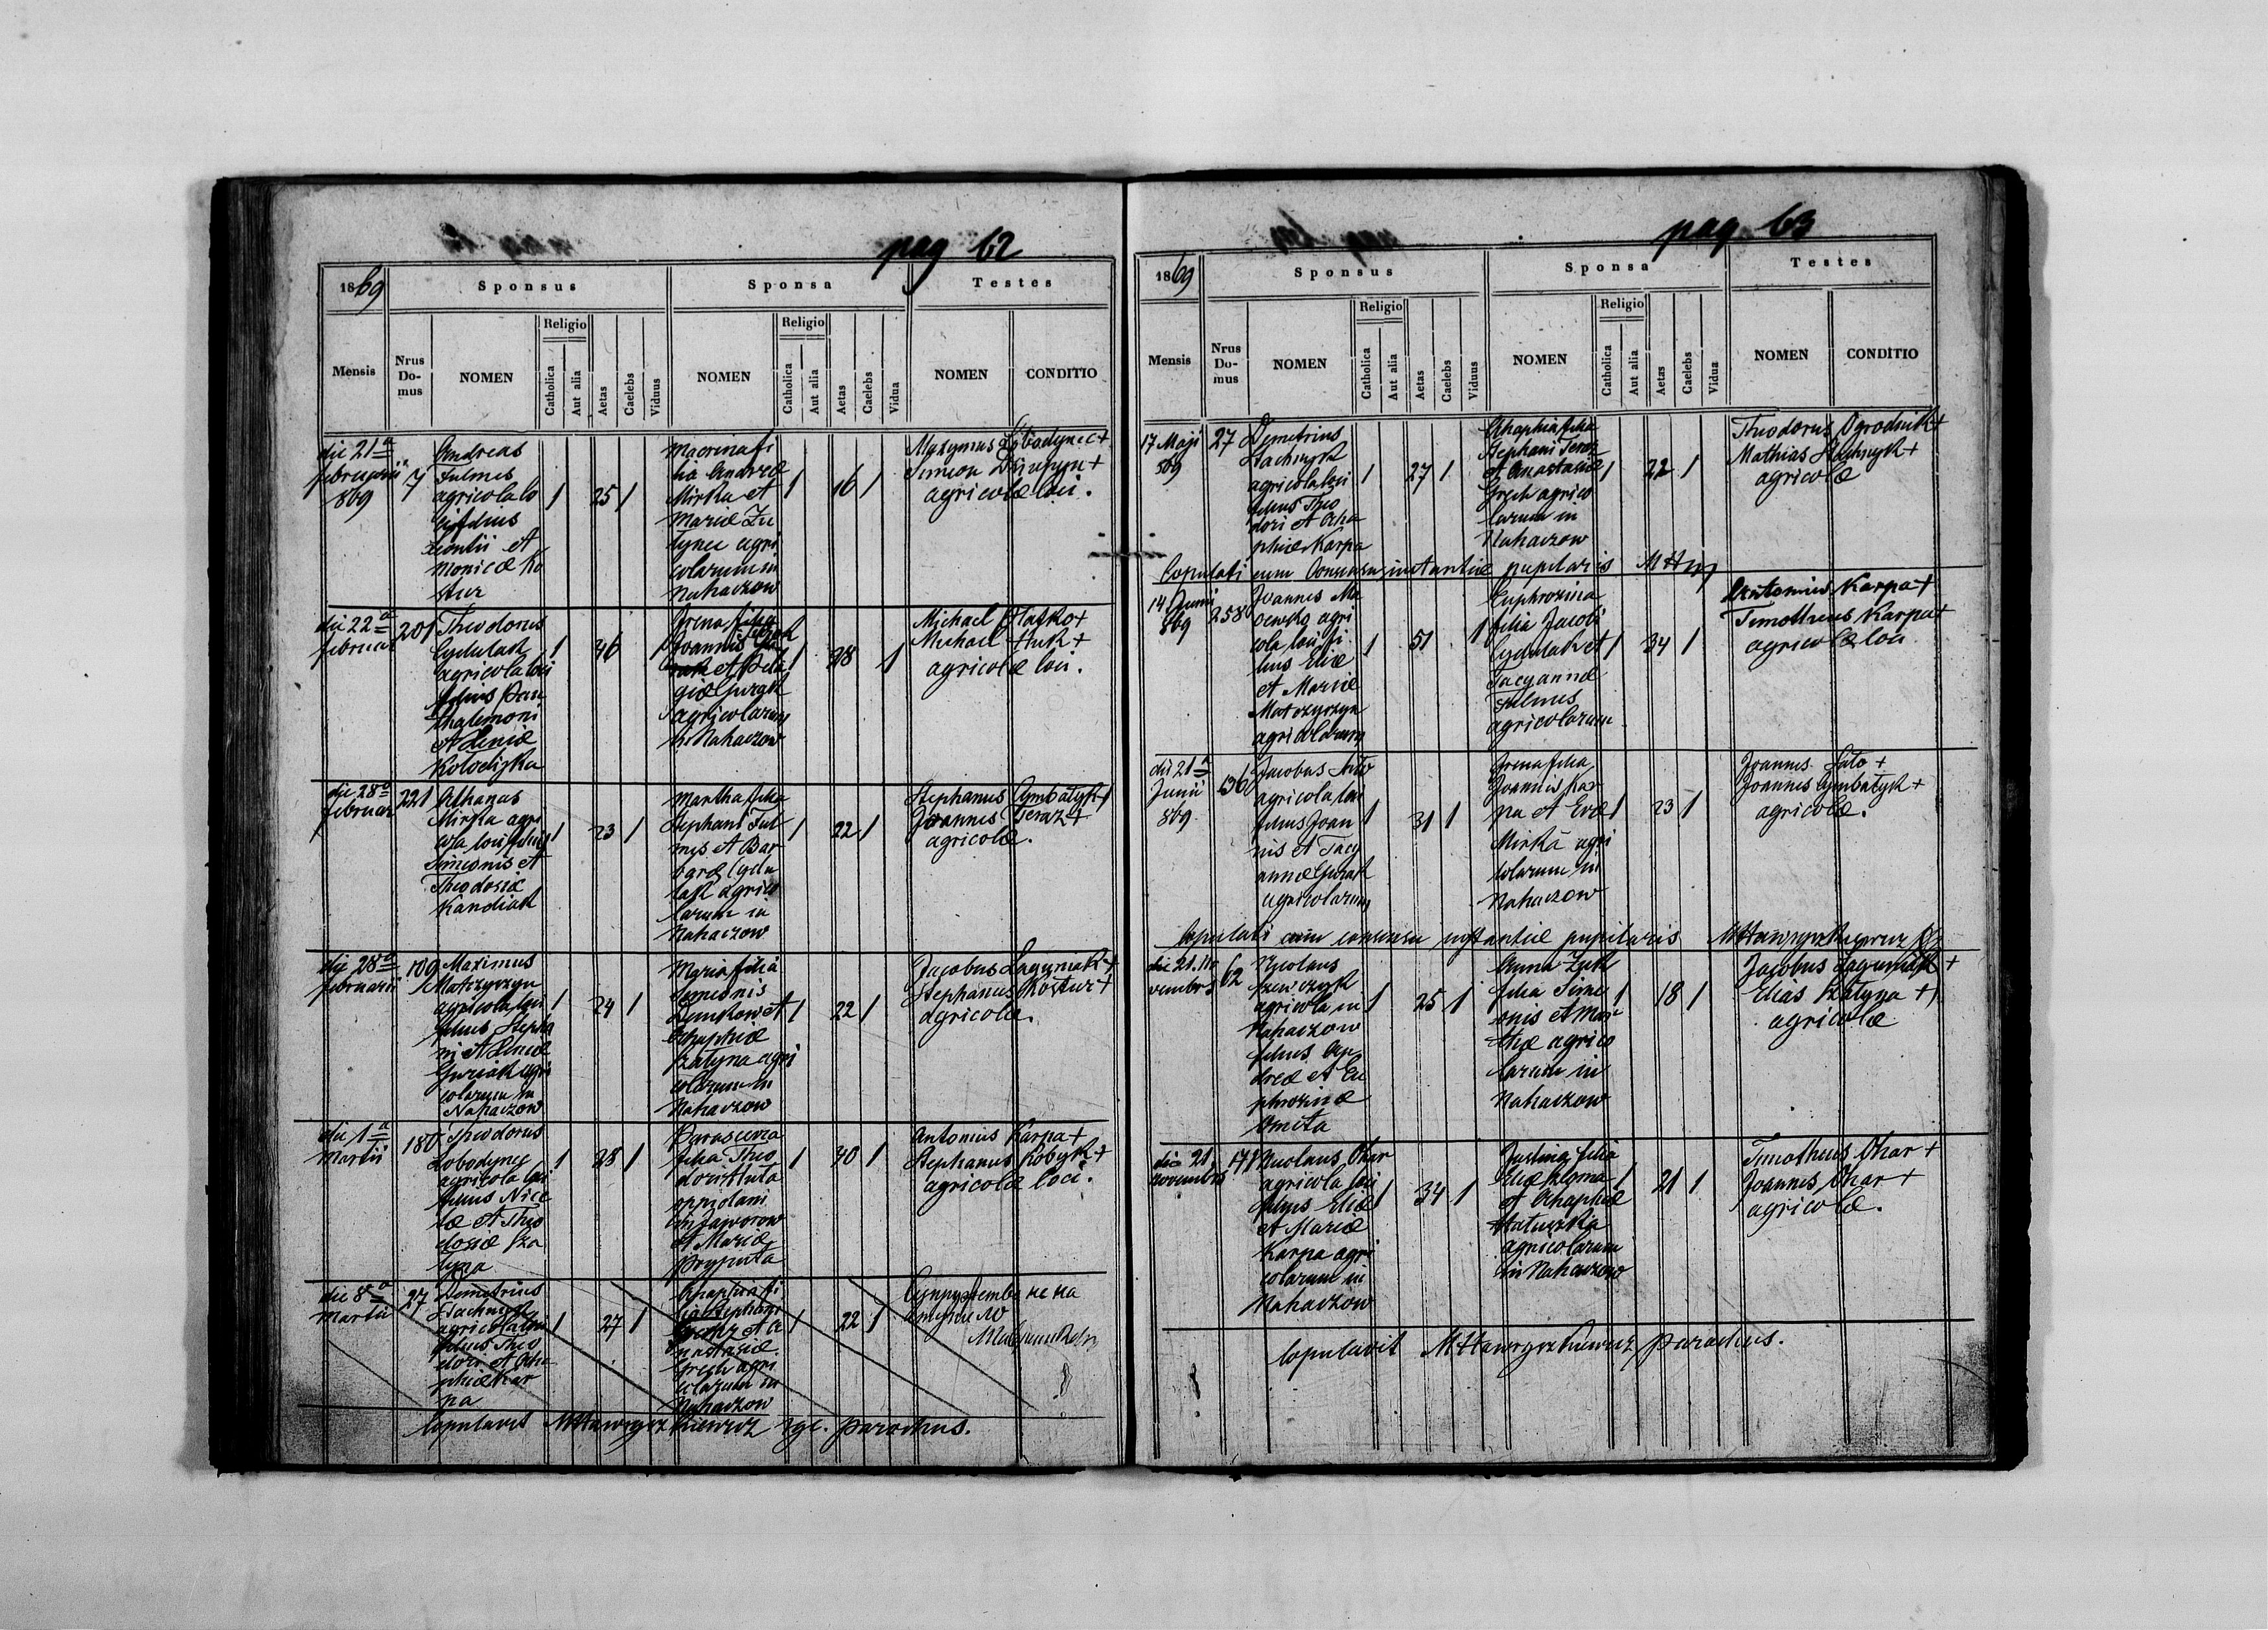 pag 62
1869
Sponsus
Sponsa
Testes
Mensis
Nrus Do-mus
NOMEN
Religio
Catholica
Aut alia
Aetas
Caelebs
Viduus
NOMEN
Religio
Catholica
Aut alia
Aetas
Caelebs
Vidua
NOMEN
CONDITIO
die 21a
februarii
869
7
Andreas
Fulmes
agricola lo
ci filius
Leontii et
Monicæ Ko
stur
1
25
1
Macrina fi
lia Andreæ
Mirka et
Mariæ Zu
tynec agri
colarum in
Nahaczow
1
16
1
Maxymus Lobodynec +
Simeon +
agricolæ loci.
die 22a
februar
201
Theodorus
Cydulak
agricola loci
filius Pan
thalemoni
et Xeniæ
Kolodizka
1
46
Irena filia
Joannis
et Pela
giæ Guzak
agricolarum
in Nahaczow
1
28
1
Michael Hatko +
Michael Huk +
agricolæ loci.
die 28a
februar
221
Athanas
Mirka agri
cola loci filius
Simeonis et
Theodosiæ
Kandiak
1
23
1
Martha filia
Stephani Ful
mes et Bar
baræ Cydu
lak agrico
larum in
Nahaczow
1
22
1
Stephanus Cymbalyk +
Joannes Teraz +
agricolæ.
die 28a
februarii
109
Maximus
Matczyszyn
agricola loci
filius Stepha
ni et Xeniæ
Guziak agri
colarum in
Nahaczow
1
24
1
Maria filia
Simeonis
Senkow et
Ahaphiæ
Szatyna agri
colarum in
Nahaczow
1
22
1
Jacobus Laguniak +
Stephanus Kostur +
agricolæ.
die 1a
Martii
180
Theodorus
Lobodynec
agricola loci
filius Nice
tæ et Theo
dosiæ Sza
tyna
1
28
1
Parascevia
filia Theo
dori Huta
oppidani
in Jaworow
et Mariæ
Pryputa
1
40
1
Antonius Karpa +
Stephanus Kobyk +
agricolæ loci.
die 8a
Martii
27
Demetrius
Stachnyk
agricola loci
filius Theo
dori et Aha
phiæ Kar
pa
1
27
1
Ahaphia fi
lia Stephani
Teraz et A
nastasiæ
Grech agri
colarum in
Nahaczow
1
22
1
Copulavit MHawryszkiewicz parochus.
pag. 63
1869
Sponsus
Sponsa
Testes
Mensis
Nrus Do-mus
NOMEN
Religio
Catholica
Aut alia
Aetas
Caelebs
Viduus
NOMEN
Religio
Catholica
Aut alia
Aetas
Caelebs
Vidua
NOMEN
CONDITIO
17 Maji
869
27
Demetrius
Stachnyk
agricola loci
filius Theo
dori et Aha
phiæ Karpa
1
27
1
Ahaphia filia
Stephani Teraz
et Anastasiæ
Grech agrico
larum in
Nahaczow
1
22
1
Theodorus Ogrodnik +
Mathias Stachnyk +
agricolæ
Copulati cum consensu instantiæ pupilaris
14 Junii
869
258
Joannes Ma
agri
cola loci fi
lius Eliæ
et Mariæ
Matczyszyn
agricolarum
1
51
1
Euphrozina
filia Jacobi
Cydulak et
Tacyannæ
Fulmes
agricolarum
1
34
1
Antonius Karpa +
Timotheus Karpa +
agricolæ loci
die 21a
Junii
869
136
Jacobus
agricola loci
filius Joan
nis et Tacy
annæ Guzak
agricolarum
1
31
1
Irena filia
Joannis Kar
pa et Evæ
Mirka agri
colarum in
Nahaczow
1
23
1
Joannes +
Joannes Cymbalyk +
agricolæ.
Copulati cum consensu instantiæ pupilaris MHawryszkiewicz
die 21 No
vembris
62
Nicolaus
Szewczyk
agricola in
Nahaczow
filius An
dreæ et Eu
phrozinæ
Ometa
1
25
1
Anna Zuk
filia Sime
onis et Mar
thæ agrico
larum in
Nahaczow
1
18
1
Jacobus Laguniak +
Elias Szatyna +
agricolæ
die 21
novembris
171
Nicolaus Ohar
agricola loci
filius Eliæ
et Mariæ
Karpa agri
colarum in
Nahaczow
1
34
1
Justina filia
Eliæ
et Ahaphiæ
Hatuszka
agricolarum
in Nahaczow
1
21
1
Timotheus Ohar +
Joannes Ohar +
agricolæ.
Copulavit MHawryszkiewicz parochus.